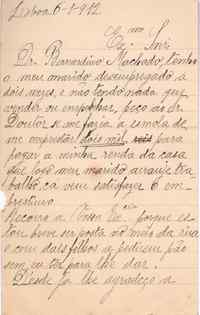 Lisboa 6-1-912
Ex.mo Snr.
Dr. Bernardino Machado, tenho
o meu marido desempregado a
dois mezes, e não tendo nada que
vender ou empenhar, peço ao Sr.
Doutor se me faria a esmola de
me emprestar dois mil reis para
pagar a minha renda da casa
que logo meu marido arranje tra
balho, cá vem satisfazer o em-
prestimo.
Recorro a Vossa Ex.cia porque es-
tou breve ser posta no meio da rua
e com dois filhos a pedirem pão
sem eu ter para lhe dar.
Desde já lhe agradeço a